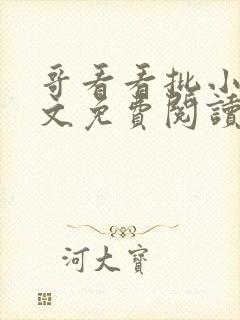 哥看看批小
文免費閱讀
河大寶